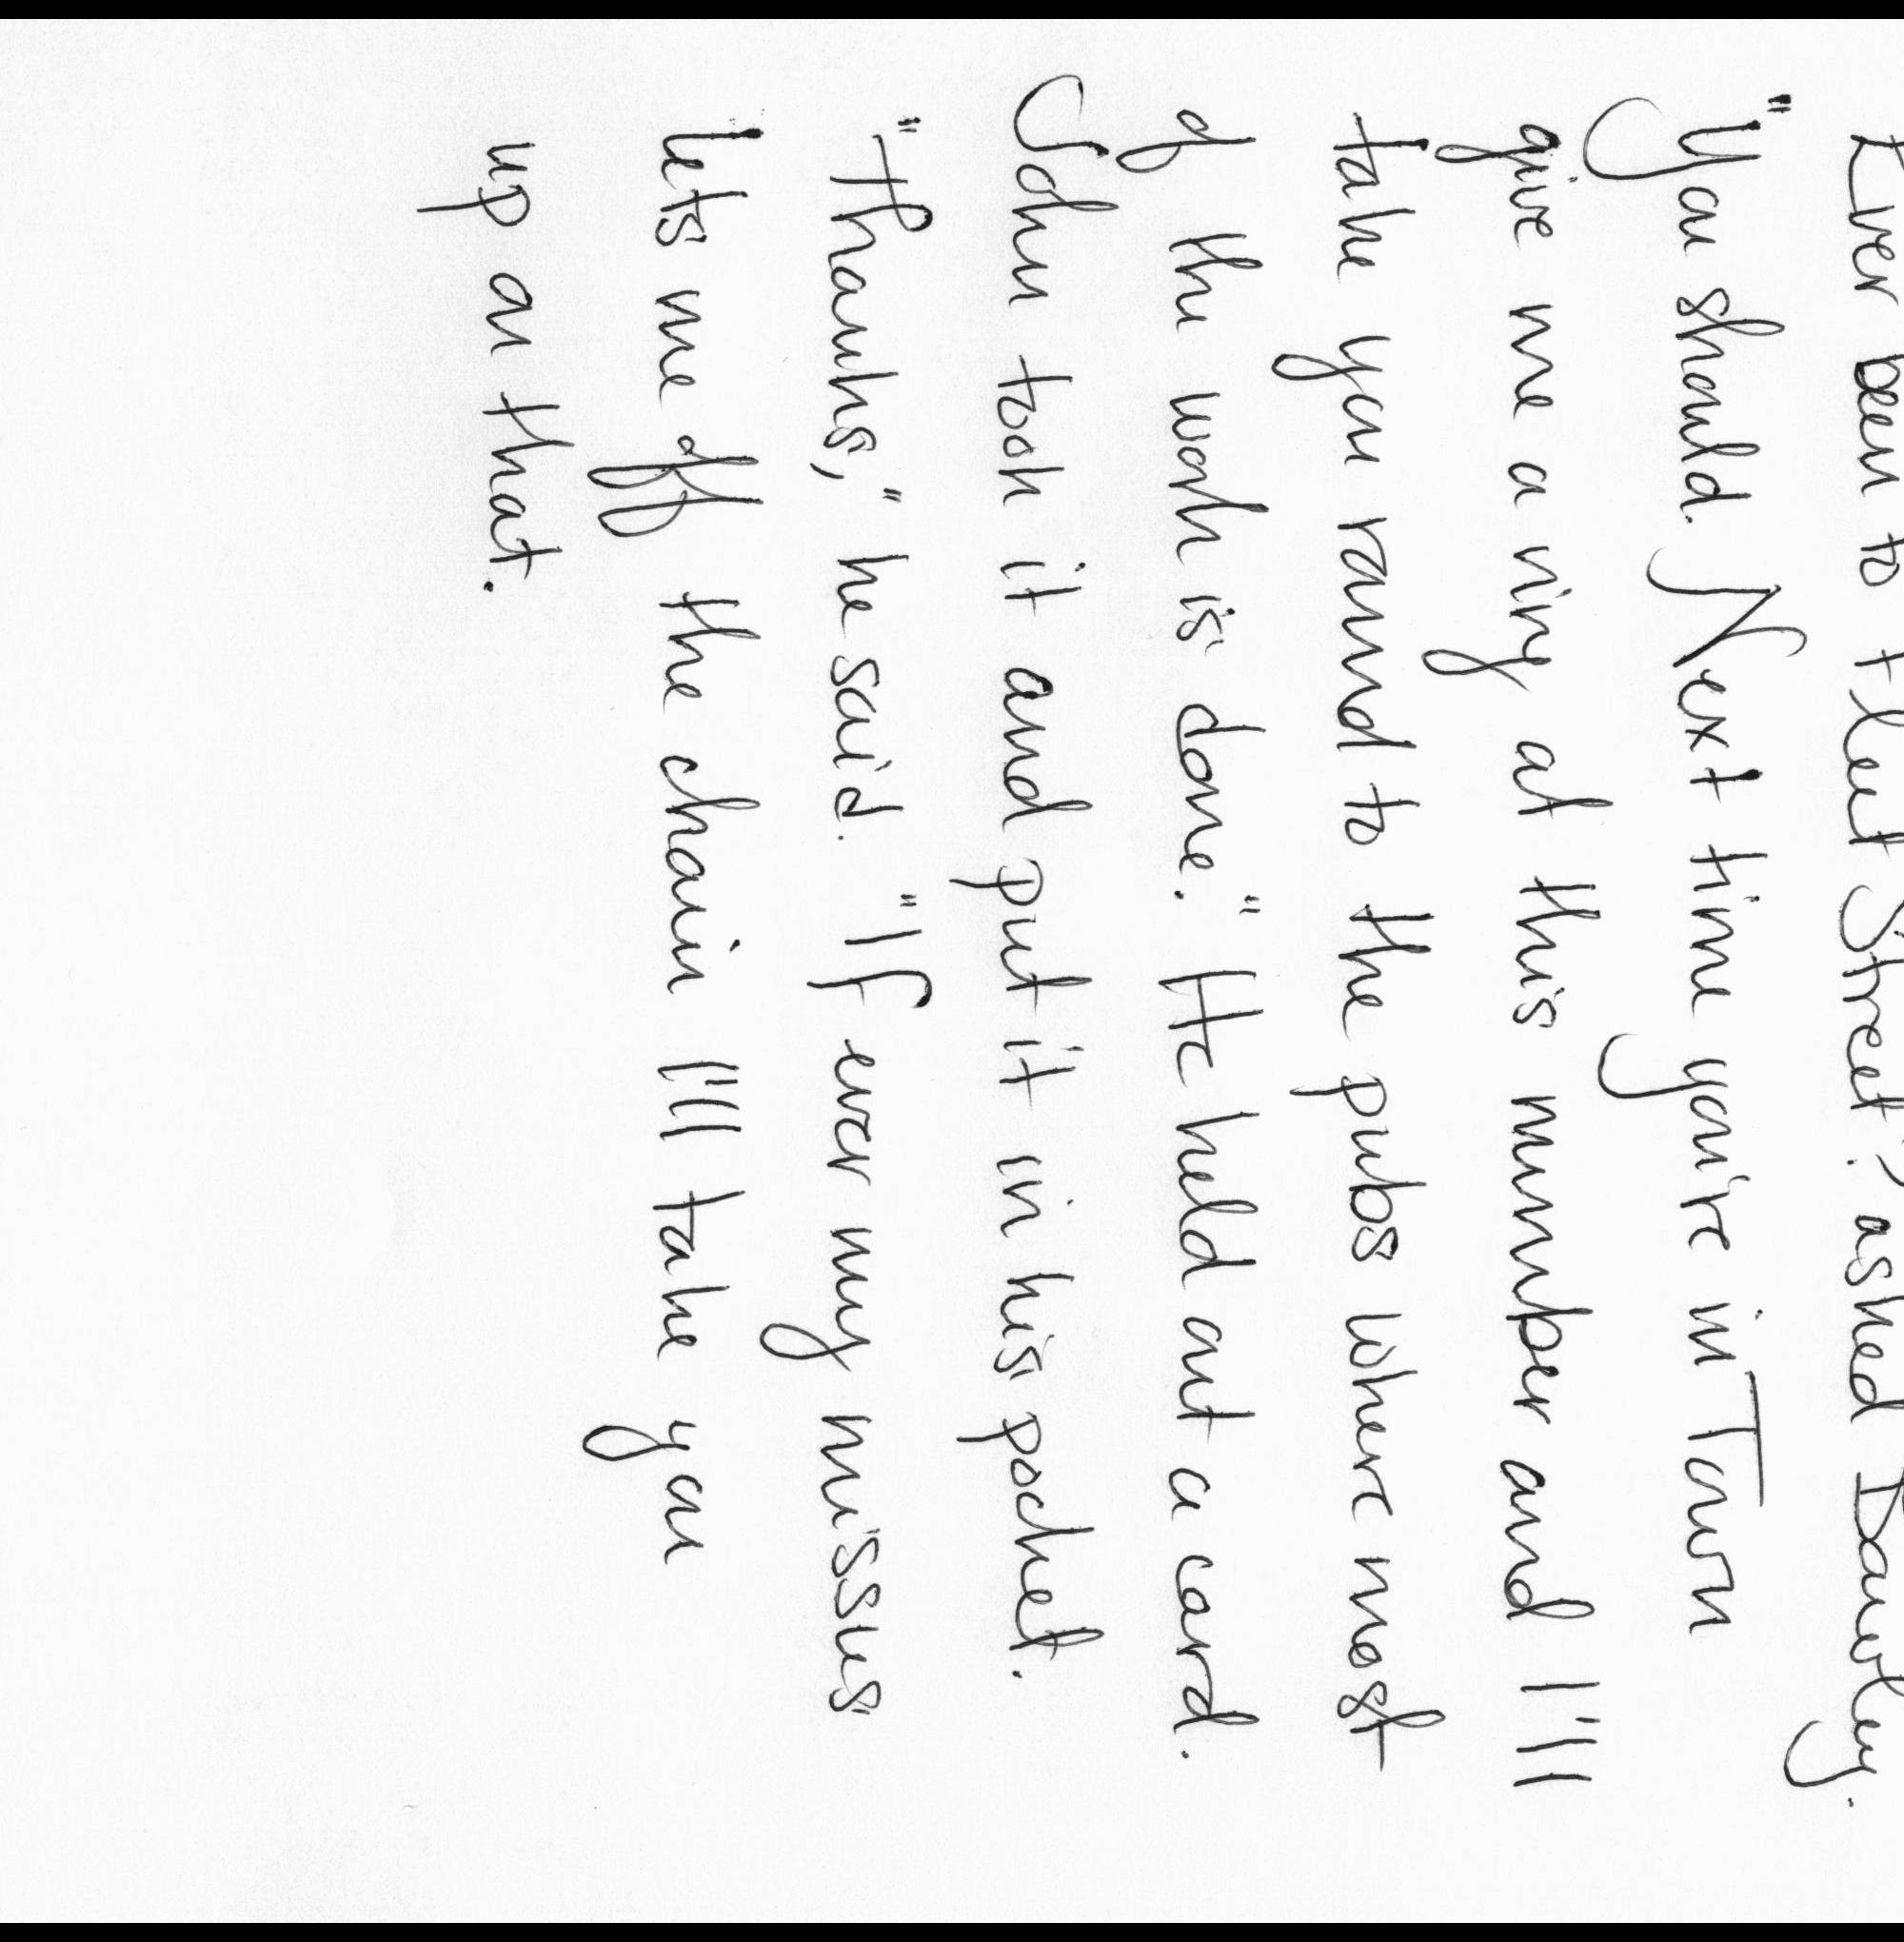 Ever been to Fleet Street? asked Dawley.
"You should. Next time you're in Town
give me a ring at this number and I'll
take you round to the pubs where most
of the work is done." He held out a card.
John took it and put it in his pocket.
"Thanks," he said. "If ever my missus
lets me off the chain I'll take you
up on that.